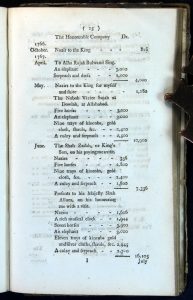 ( 25 )
The Honourable Company Dr.
1766.
October. Nuzir to the King 816
1767.
April. To Alla Rajah Bulwant Sing.
An elephant 3,000
Serpeach and cloth 1,000
4,000
May. Nuzirs to the King for myself
and sister 1,182
The Nabob Vizier Sujah ul
Dowlah, at Allahabad.
Five horses 3,000
An elephant 3,000
Nine trays of kincobs, gold
cloth, shauls, &c. 2,400
A culgy and serpeach 4,400
June. The Shah Zadah, or King's
Son, on his passing me with
Nuzirs 336
Five horses 2,800
Nine trays of kincobs, gold
cloth, &c. 2,400
A culgy and serpeach 1,800
7,336
Presents to his Majesty Shah
Allum, on his honouring
me with a visit.
Nuzirs
A rich muslnud cloth
Seven horses
An elephant
Eleven trays of kincobs gold
and silver cloths, shauls, &c.
A culgy and serpeach
16,105
July